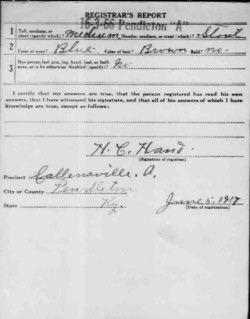 REGISTRAR'S REPORT
16-3-66 Pendleton "A"
1 Tall, medium, or short (specify which)? medium Slender, medium, or stout (which)? Stout
2 Color of eyes? Blue Color of hair? Brown Bald? no.
3 Has person lost arm, leg, hand, foot, or both eyes, or is he otherwise disabled (specify)? No
I certify that my answers are true, that the person registered has read his own
answers, that I have witnessed his signature, and that all of his answers of which I
have knowledge are true, except as follows:
H. C. Hand.
(Signature of registrar)
Precinct Callensville. A.
City or County Pendleton
State Ky. June 5, 1917
(Date of registration)